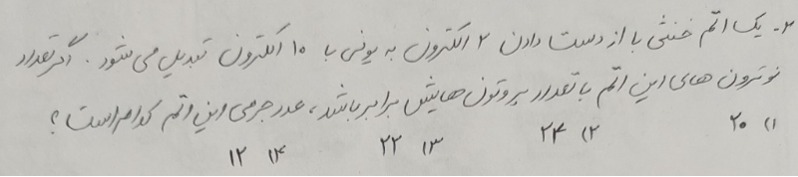 ۲- یک اتم خنثی با از دست دادن ۲ الکترون به یونی با ۱۰ الکترون تبدیل می شود. اگر تعداد
نوترون های این اتم با تعداد پروتون هایش برابر باشد، عدد جرمی این اتم کدام است؟
۱) ۲۰ ۲) ۲۴ ۳) ۲۲ ۴) ۱۲